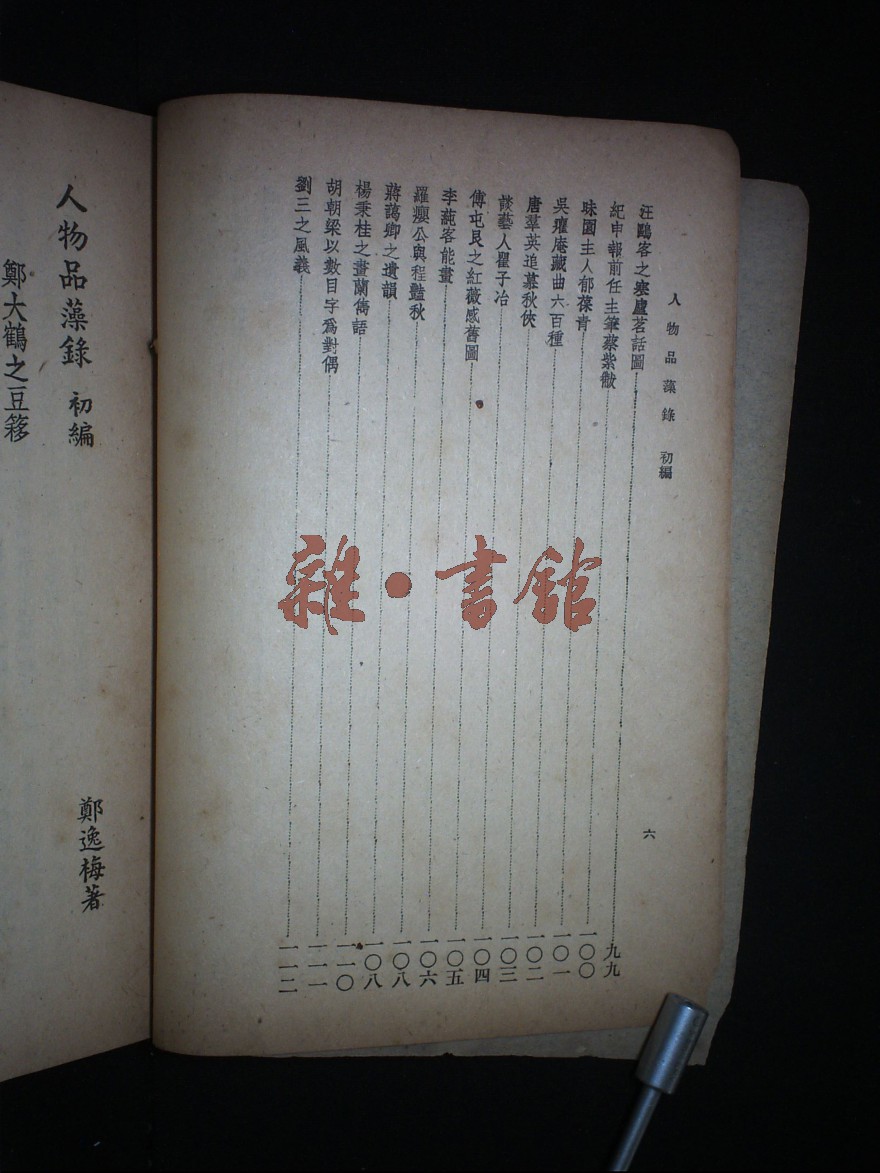 人物品藻錄 初編 六
汪鷗客之寒廬茗話圖 九九
紀申報前任主筆蔡紫黻 一〇〇
味園主人郁葆青 一〇一
吳癯庵藏曲六百種 一〇二
唐羣英追慕秋俠 一〇三
談藝人瞿子冶 一〇四
傅屯艮之紅薇感舊圖 一〇五
李蒓客能畫 一〇六
羅癭公與程豔秋 一〇八
蔣藹卿之遺韻 一〇八
楊秉桂之畫蘭雋語 一一〇
胡朝梁以數目字爲對偶 一一一
劉三之風義 一一二
人物品藻錄 初編
鄭逸梅著
鄭大鶴之豆簃
雜·書館